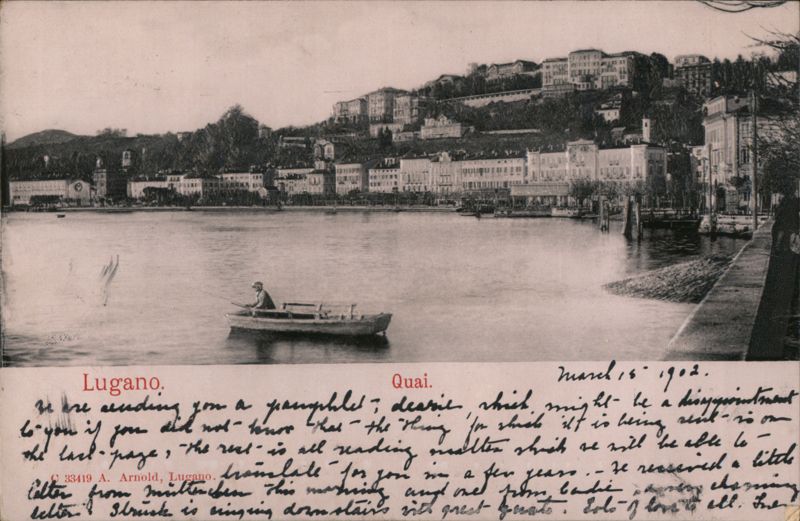 Lugano.
Quai.
March 15 1902.
We are sending you a pamphlet, dearie, which might be a disappointment
to you if you did not know that the thing for which it is being sent is on
the last page, the rest is all reading matter which we will be able to
C 33419 A. Arnold, Lugano.
translate for you in a few years. We received a little
letter from this morning and one from charming
letter. is singing downstairs with great gusto. Lots of love to all.